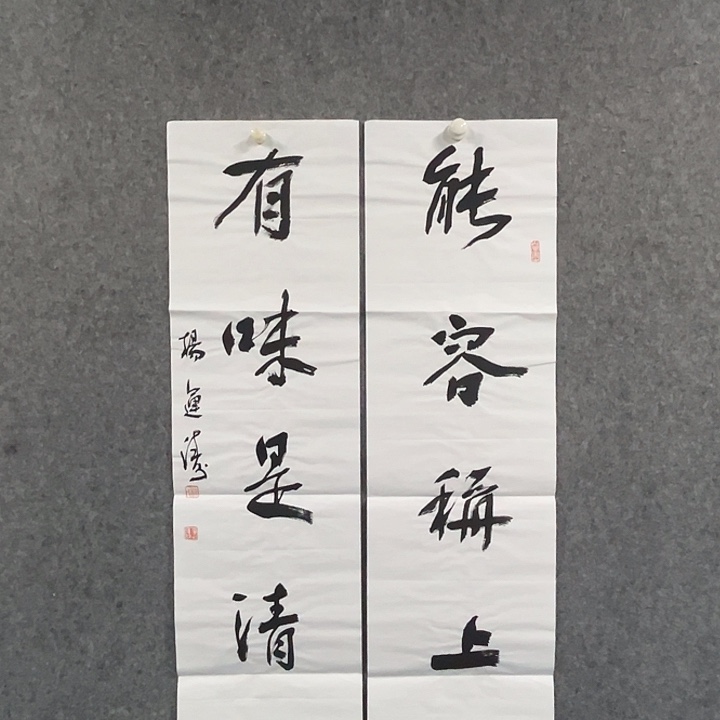 能容稱上
有味是清
楊運濤